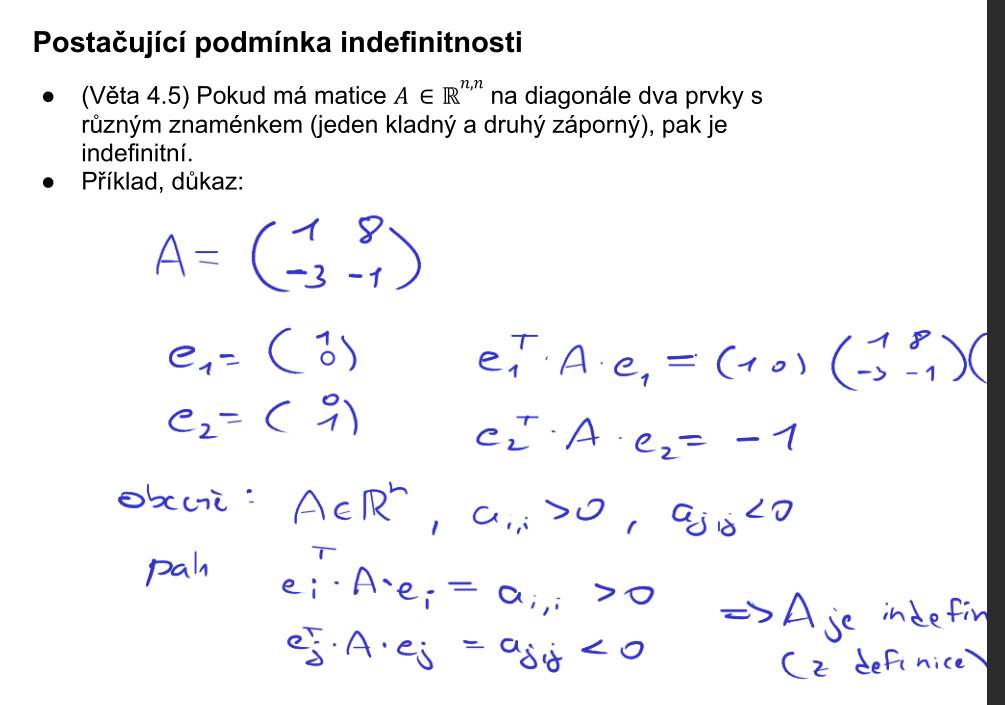 Postačující podmínka indefinitnosti
● (Věta 4.5) Pokud má matice A ∈ ℝ^{n,n} na diagonále dva prvky s
různým znaménkem (jeden kladný a druhý záporný), pak je
indefinitní.
● Příklad, důkaz:
A = ( 1 8
-3 -1 )
e₁ = ( 1 0 ) e₁ᵀ · A · e₁ = ( 1 0 ) ( 1 8 -3 -1 ) (
e₂ = ( 0 1 ) e₂ᵀ · A · e₂ = -1
obecně : A ∈ ℝⁿ , a_{i,i} > 0 , a_{j,j} < 0
pak e_iᵀ · A · e_i = a_{i,i} > 0
e_jᵀ · A · e_j = a_{j,j} < 0
=> A je indefin
(z definice)